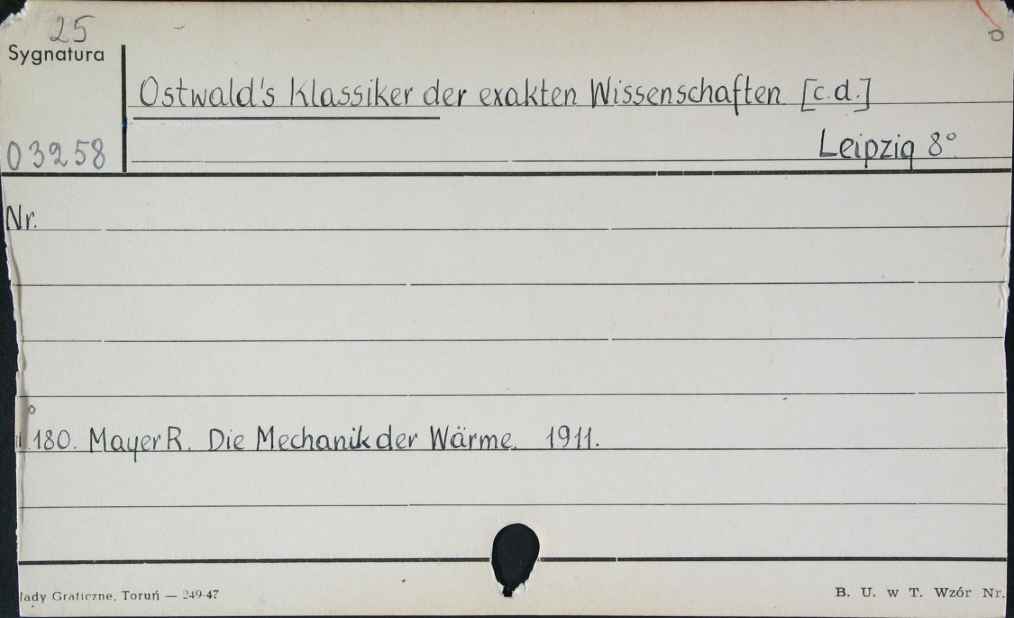 25
Sygnatura
Ostwald's Klassiker der exakten Wissenschaften [c.d.]
03258
Leipzig 8°
Nr.
180. Mayer R. Die Mechanik der Wärme. 1911.
lady Graficzne, Toruń — 249-47
B. U. w T. Wzór Nr.